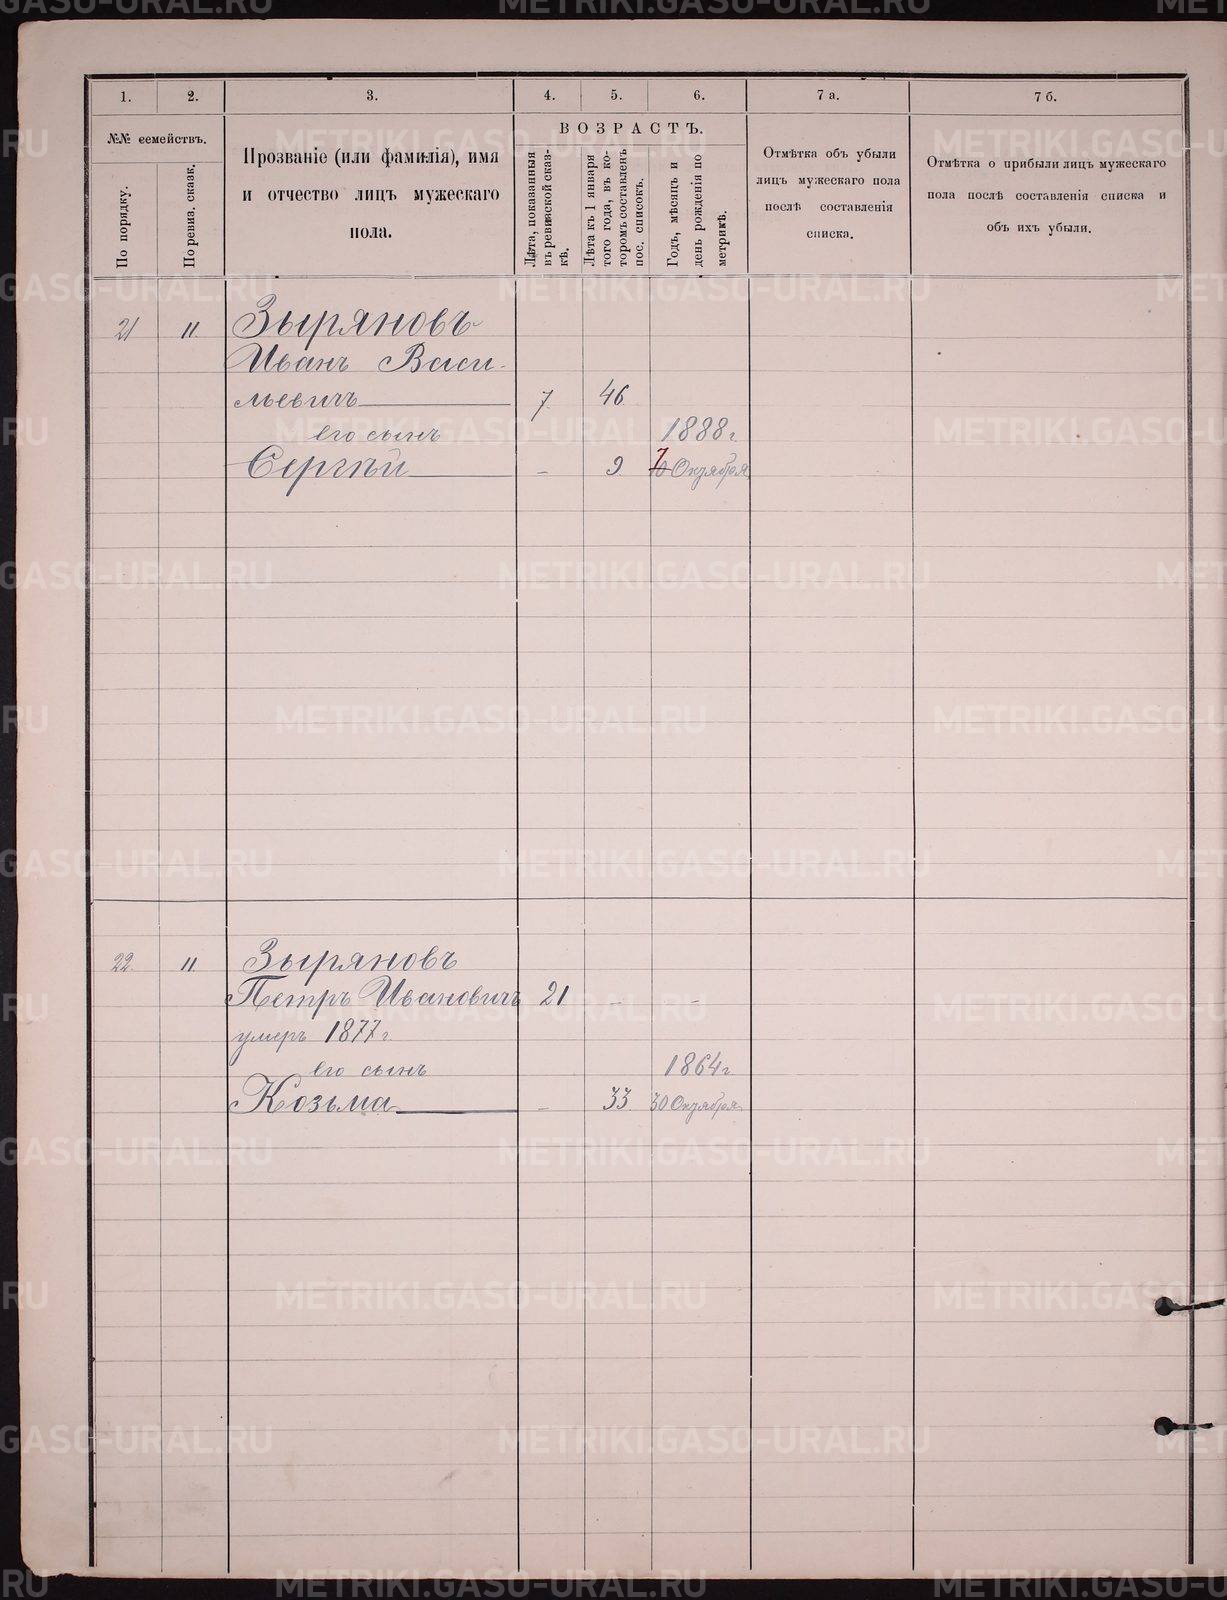 1. 2. 3. 4. 5. 6. 7 а. 7 б.
№№ семействъ.
По порядку.
По ревиз. сказк.
Прозваніе (или фамилія), имя
и отчество лицъ мужескаго
пола.
ВОЗРАСТЪ.
Лѣта, показанныя
въ ревизской сказ-
кѣ.
Лѣта къ 1 января
того года, въ ко-
торомъ составленъ
пос. списокъ.
Годъ, мѣсяцъ и
день рожденія по
метрикѣ.
Отмѣтка объ убыли
лицъ мужескаго пола
послѣ составленія
списка.
Отмѣтка о прибыли лицъ мужескаго
пола послѣ составленія списка и
объ ихъ убыли.
21 11. Зыряновъ
Иванъ Васи-
льевичъ 7. 46.
его сынъ 1888 г.
Сергѣй – 9. 7 Октября
22. 11 Зыряновъ
Петръ Ивановичъ 21. – –
умеръ 1877 г.
его сынъ 1864 г.
Козьма – 33. 30 Октября
METRIKI.GASO-URAL.RU